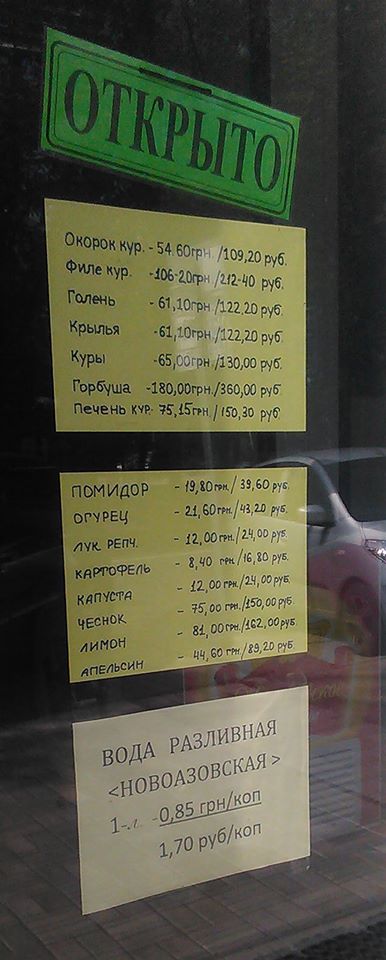 ОТКРЫТО
Окорок кур. - 54.60грн./109,20 руб.
Филе кур. -106-20грн/212-40 руб.
Голень - 61,10грн./122.20 руб.
Крылья -61,10грн./122,20 руб.
Куры -65,00грн./130,00 руб.
Горбуша -180,00грн./360,00 руб.
Печень кур. 75,15грн./150,30 руб
ПОМИДОР - 19,80 грн./ 39,60 руб.
ОГУРЕЦ - 21,60 грн./43,20 руб.
ЛУК РЕПЧ. - 12,00 грн./24,00 руб.
КАРТОФЕЛЬ - 8,40 грн./16,80 руб.
КАПУСТА - 12,00 грн./24,00 руб.
ЧЕСНОК - 75,00 грн./150,00 руб.
ЛИМОН - 81,00 грн./162,00 руб.
АПЕЛЬСИН - 44,60 грн./89,20 руб.
ВОДА РАЗЛИВНАЯ
<НОВОАЗОВСКАЯ>
1-л. -0,85 грн/коп
1,70 руб/коп